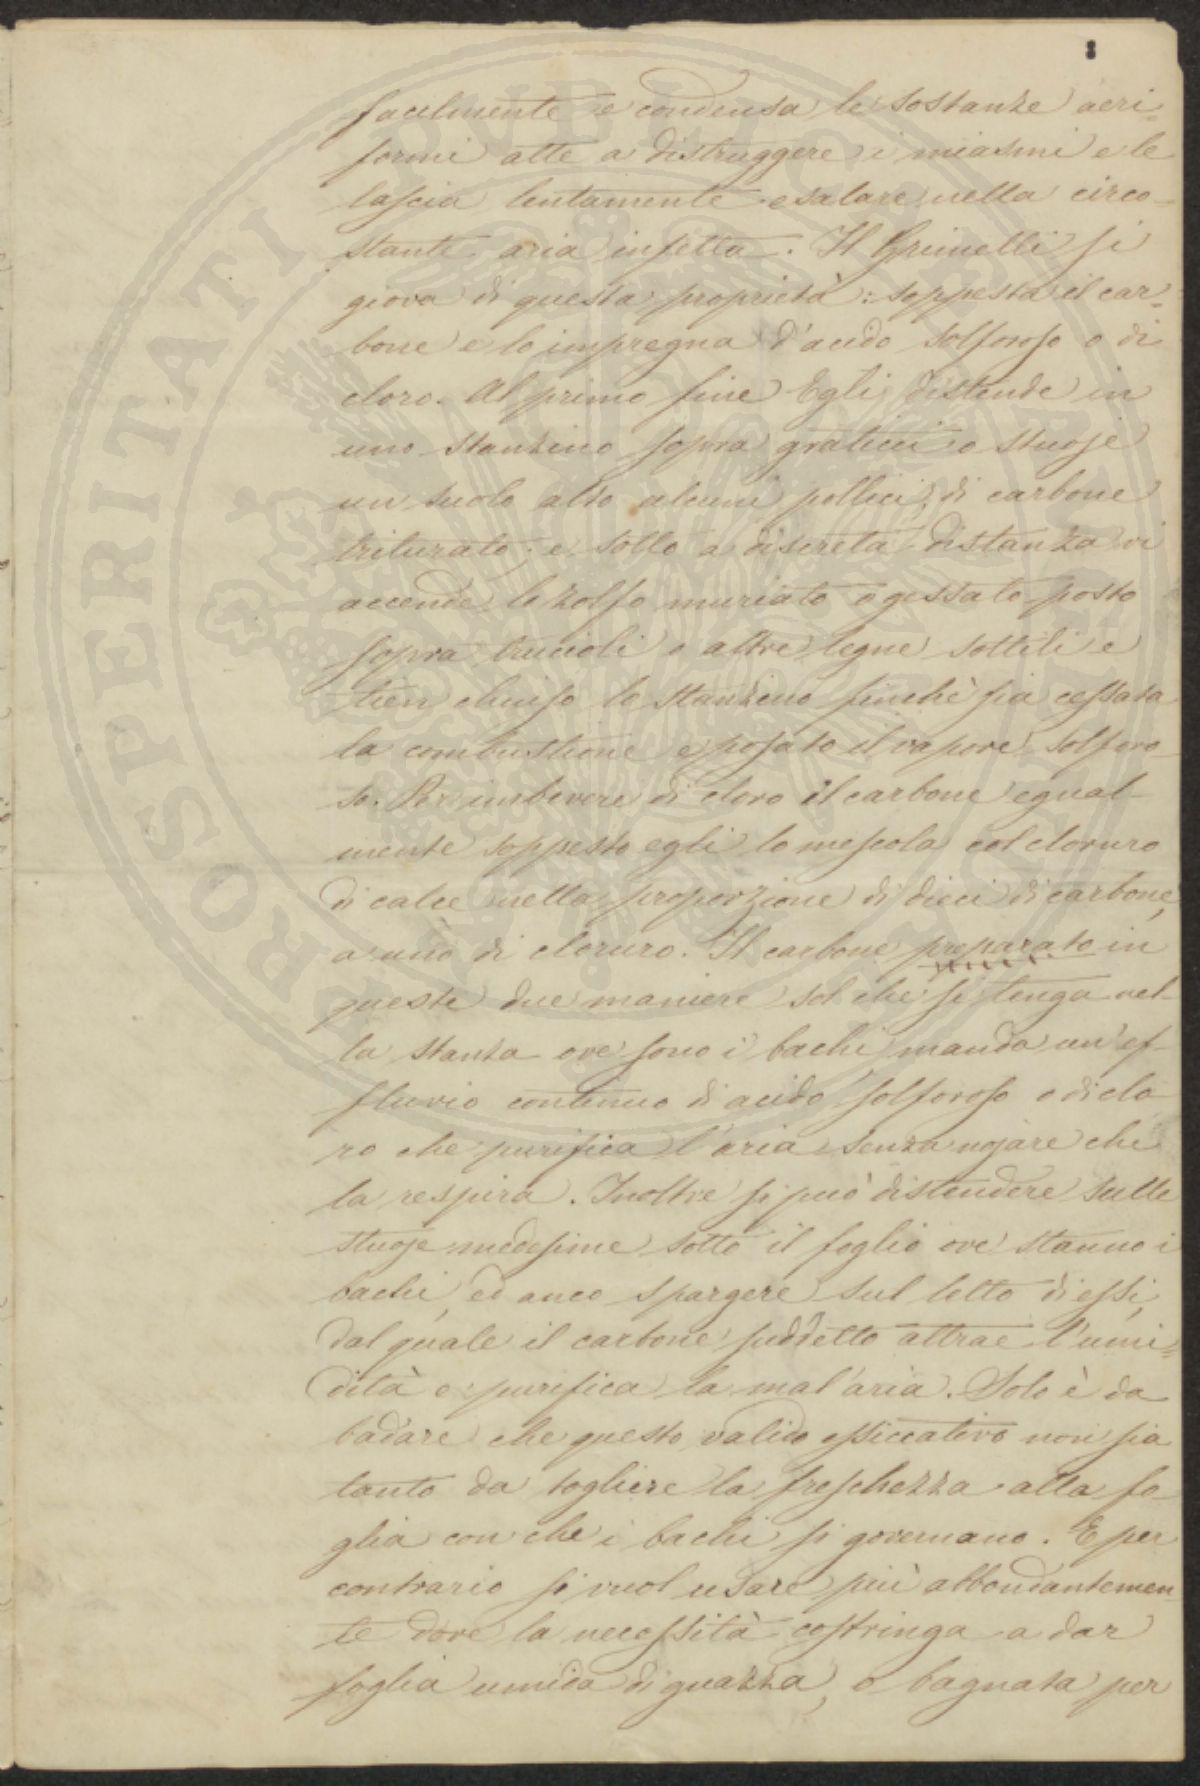 facilmente e condensa le sostanze aeri=
formi atte a distruggere i miasmi e le
lascia lentamente esalare nella circo-
stante aria infetta. Il Grimelli si
giova di questa proprietà: soppesta il car-
bone e lo impregna d'acido solforoso o di
cloro. Al primo fine Egli distende in
uno stanzino sopra graticci o stuoje
un suolo alto alcuni pollici di carbone
triturato; e sotto a discreta distanza vi
accende lo zolfo muriato o gessato posto
sopra trucioli o altre legne sottili e
tien chiuso lo stanzino finchè sia cessata
la combustione e posato il vapore solforo-
so. Per imbevere di cloro il carbone egual-
mente soppesto egli lo mescola col cloruro
di calce nella proporzione di dieci di carbone,
a uno di cloruro. Il carbone preparato in
queste due maniere sol che si tenga nel-
la stanza ove sono i bachi manda un'ef-
fluvio continuo di acido solforoso o di clo-
ro che purifica l'aria senza nojare chi
la respira. Inoltre si può distendere sulle
stuoje medesime sotto il foglio ove stanno i
bachi, ed anco spargere sul letto di essi,
dal quale il carbone suddetto attrae l'umi=
dità e purifica la mal'aria. Solo è da
badare che questo valido essiccativo non sia
tanto da togliere la freschezza alla fo-
glia con che i bachi si governano. E per
contrario si vuol usare più abbondantemen-
te dove la necessità costringa a dar
foglia umida di guazza, o bagnata per
PROSPERITATI PUBLICAE AUGENDAE